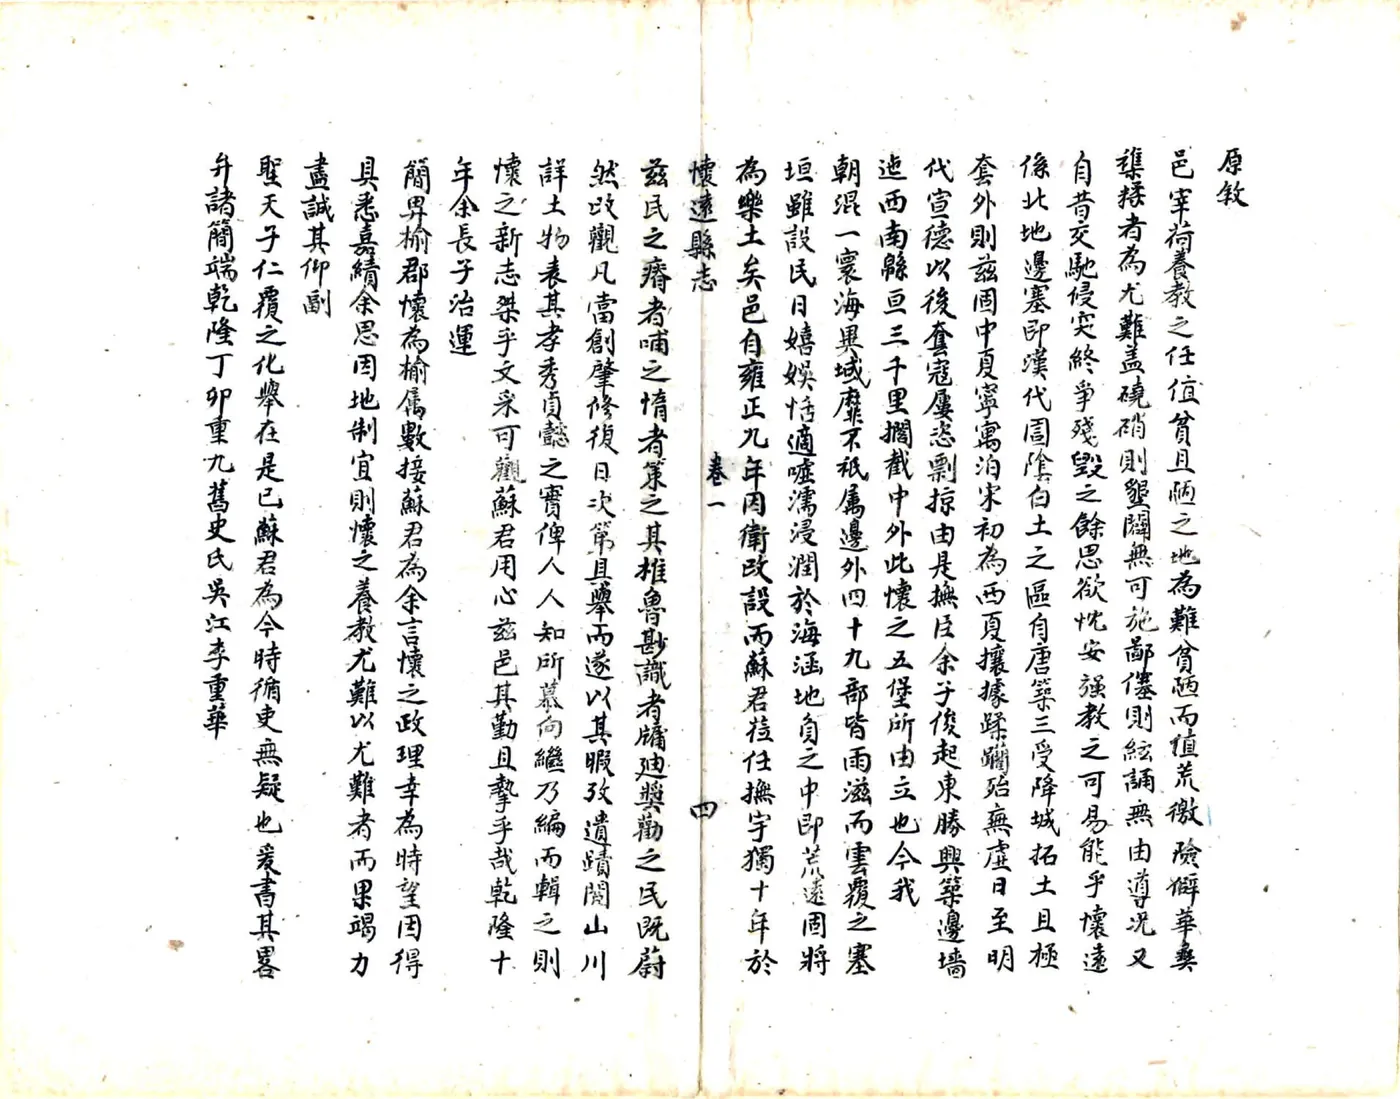 原敘
邑宰荷養教之任值貧且陋之地為難貧陋而值荒徼險僻華彝
雜糅者為尤難盖磽硝則墾闢無可施鄙僿則絃誦無由導况又
自昔交馳侵突終爭殘毀之餘思欲忱安強教之可易能乎懷遠
係北地邊塞即漢代圁陰白土之區自唐築三受降城拓土且極
套外則兹固中夏寧寓泊宋初為西夏攘據蹂躪殆無虛日至明
代宣德以後套寇屢恣剽掠由是撫臣余子俊起東勝興築邊墻
迤西南緜亘三千里擱截中外此懷之五堡所由立也今我
朝混一寰海異域靡不祇属邊外四十九部皆雨滋而雲覆之塞
垣雖設民日嬉娛恬適噓濡浸潤於海涵地負之中即荒遠固將
為樂土矣邑自雍正九年因衛改設而蘇君莅任撫字獨十年於
懷遠縣志
卷一
四
兹民之瘠者哺之惰者策之其椎魯尠識者牖廸奬勸之民既蔚
然改觀凡當創肇修復日次第具舉而遂以其暇攷遺蹟閱山川
詳土物表其孝秀貞懿之實俾人人知所慕向繼乃編而輯之則
懷之新志桀乎文采可觀蘇君用心兹邑其勤且摯乎哉乾隆十
年余長子治運
簡畀榆郡懷為榆属數接蘇君為余言懷之政理幸為時望因得
具悉嘉績余思因地制宜則懷之養教尤難以尤難者而果竭力
盡誠其仰副
聖天子仁覆之化舉在是已蘇君為今時循吏無疑也爰書其畧
弁諸簡端乾隆丁卯重九舊史氏吳江李重華